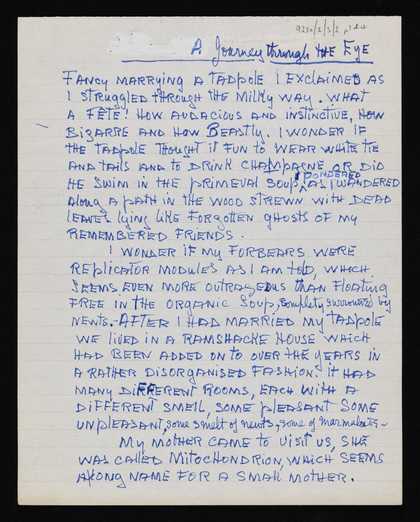 9250/2/3/2 p1 of 4
A Journey through the Eye
Fancy marrying a tadpole I exclaimed as
I struggled through the Milky Way. What
a fête! How audacious and instinctive, how
bizarre and how beastly. I wonder if
the tadpole thought it fun to wear white tie
and tails and to drink champagne or did
he swim in the primeval soup, I pondered
as I wandered
along a path in the wood strewn with dead
leaves lying like forgotten ghosts of my
remembered friends.
I wonder if my forbears were
replicator modules as I am told, which
seems even more outrageous than floating
free in the organic soup, completely surrounded by
newts. After I had married my tadpole
we lived in a ramshacke house which
had been added on to over the years in
a rather disorganised fashion. It had
many different rooms, each with a
different smell, some pleasant some
unpleasant, some smelt of newts, some of marmalade.
My mother came to visit us, she
was called Mitochondrion, which seems
a long name for a small mother.